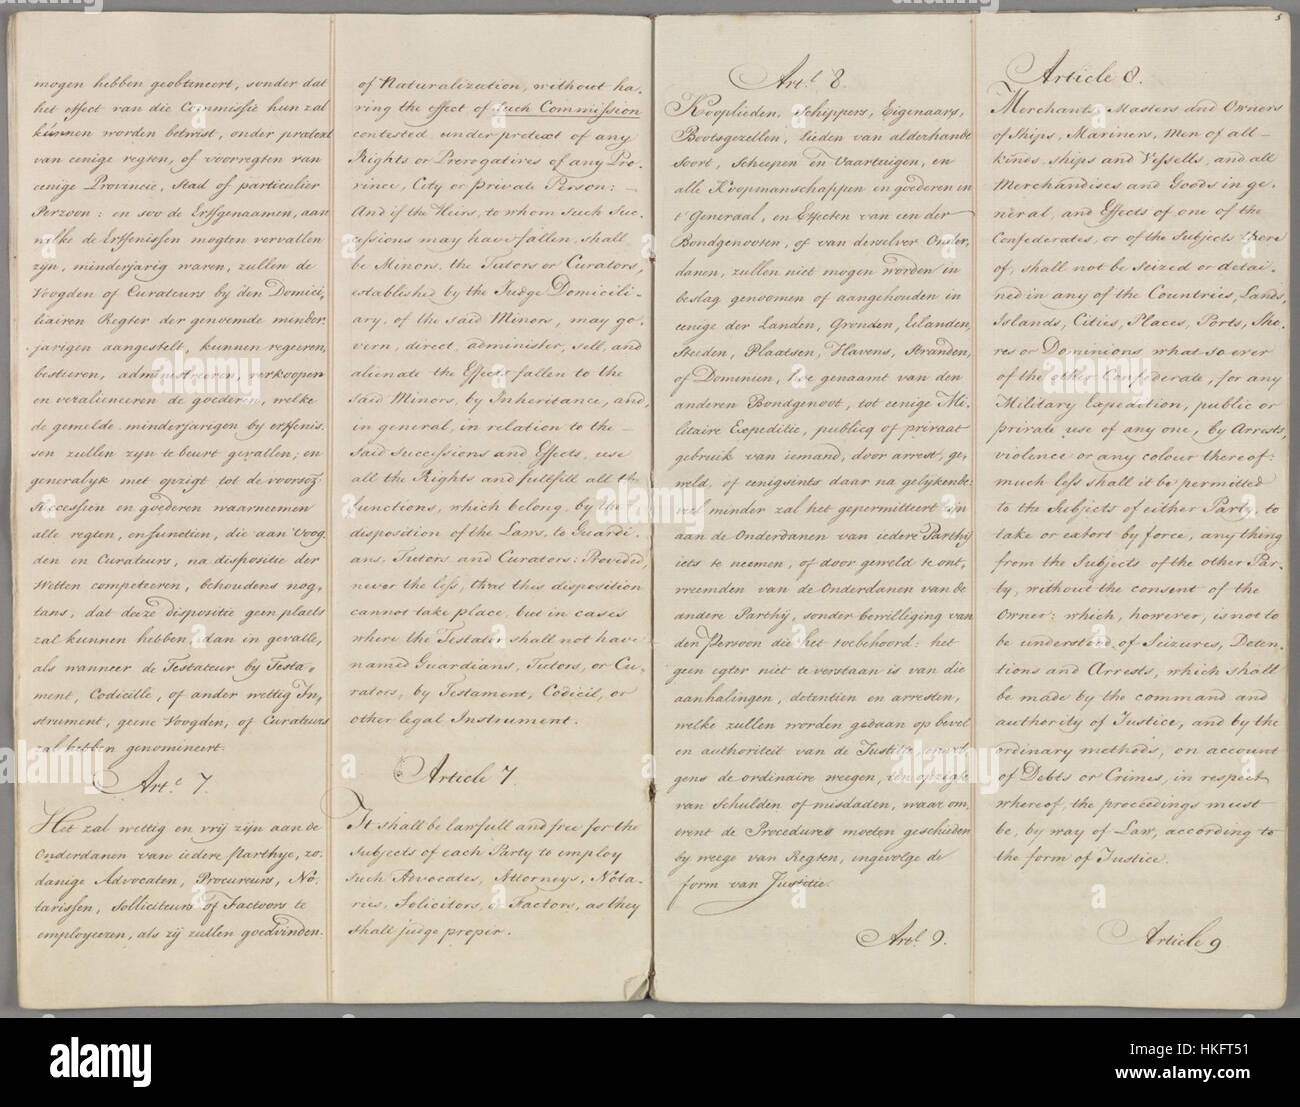 mogen hebben geobtineert, sonder dat
het effect van die Commissie hun zal
kúnnen worden betwist, onder pretext
van eenige regten, of voorregten van
eenige Provincie, Stad of particulier
Perzoon: en soo de Erffgenaamen, aan
welke de Erffenissen mogten vervallen
zyn, minderjarig waren, zullen de
Voogden of Curateurs by den Domici,
liairen Regter der genoemde minder,
jarigen aangestelt, kunnen regeeren,
bestieren, administreeren, verkoopen
en veralieneeren de goederen, welke
de gemelde minderjarigen by erffenis,
sen zullen zyn te beurt gevallen; en
generalyk met opzigt tot de voorsz:
Successien en goederen waarnemen
alle regten, en functien, die aan Voog,
den en Curateurs, na dispositie der
Wetten competeeren, behoudens nog,
tans, dat deeze dispositie geen plaets
zal kunnen hebben, dan in gevalle,
als wanneer de Testateur by Testa,
ment, Codicille, of ander wettig In,
strument, geene Voogden, of Curateurs
zal hebben genomineert.
Art.l 7.
Het zal wettig en vrij zijn aan de
Onderdanen van iedere Parthye, zo,
danige Advocaten, Procureurs, No,
tarissen, Solliciteurs of Factoors te
employeeren, als zij zullen goedvinden.
of Naturalization, without ha,
ring the effect of such Commission
contested under pretext of any
Rights or Prerogatives of any Pro,
vince, City or private Person: —
And if the Heirs, to whom such Suc,
cessions may have fallen, shall
be Minors, the Tutors or Curators,
established by the Judge Domicili,
ary, of the said Minors, may go,
vern, direct, administer, sell, and
alienate the Effects fallen to the
said Minors, by Inheritance, and,
in general, in relation to the —
said Successions and Effects, use
all the Rights and fullfill all the
functions, which belong, by the
disposition of the Laws, to Guardi,
ans, Tutors and Curators: Provided,
never the less, that this disposition
cannot take place, but in cases
where the Testator shall not have
named Guardians, Tutors, or Cu,
rators, by Testament, Codicil, or
other legal Instrument.
Article 7
It shall be lawfull and free for the
Subjects of each Party to employ
such Advocates, Attorneys, Nota,
ries, Solicitors, or Factors, as they
shall judge proper.
Art.l 8.
Kooplieden, Schippers, Eigenaars,
Bootsgezellen, lieden van alderhande
Soort, Scheepen en Vaartuigen, en
alle Koopmanschappen en goederen in
't Generaal, en Effecten van een der
Bondgenooten, of van deszelver Onder,
danen, zullen niet mogen worden in
beslag genoomen of aangehouden in
eenige der Landen, Gronden, Eilanden,
Steeden, Plaatsen, Havens, Stranden,
of Dominien, hoe genaamt van den
anderen Bondgenoot, tot eenige Mi,
litaire Expeditie, publicq of privaat
gebruik van iemand, door arrest, ge,
weld, of eenigsints daar na gelykende:
veel minder zal het gepermitteert zijn
aan de Onderdanen van iedere Parthij
iets te neemen, of door geweld te ont,
vreemden van de Onderdanen van de
andere Parthij, sonder bewilliging van
den Persoon die het toebehoord: het
geen egter niet te verstaan is van die
aanhalingen, detentien en arresten,
welke zullen worden gedaan op bevel
en authoriteit van de Justitie, en vol,
gens de ordinaire weegen, ten opzigte
van Schulden of misdaden, waar om,
trent de Procedures moeten geschieden
by weege van Regten, ingevolge de
form van Justitie.
Art.l 9.
5
Article 8.
Merchants, Masters and Owners
of Ships, Mariners, Men of all —
kinds, ships and Vessells, and all
Merchandises and Goods in ge,
neral, and Effects of one of the
Confederates, or of the Subjects there
of, shall not be seized or detai,
ned in any of the Countries, Lands,
Islands, Cities, Places, Ports, Sho,
res or Dominions what so ever
of the other Confederate, for any
Military Expedition, public or
private use of any one, by Arrests,
violence or any colour thereof:
much less shall it be permitted
to the Subjects of either Party, to
take or extort by force, any thing
from the Subjects of the other Par,
ty, without the consent of the
Owner: which, however, is not to
be understood of Seizures, Deten,
tions and Arrests, which shall
be made by the command and
authority of Justice, and by the
ordinary methods, on account
of Debts or Crimes, in respect
whereof, the proceedings must
be, by way of Law, according to
the form of Justice.
Article 9
alamy
Image ID: HKFT51
www.alamy.com